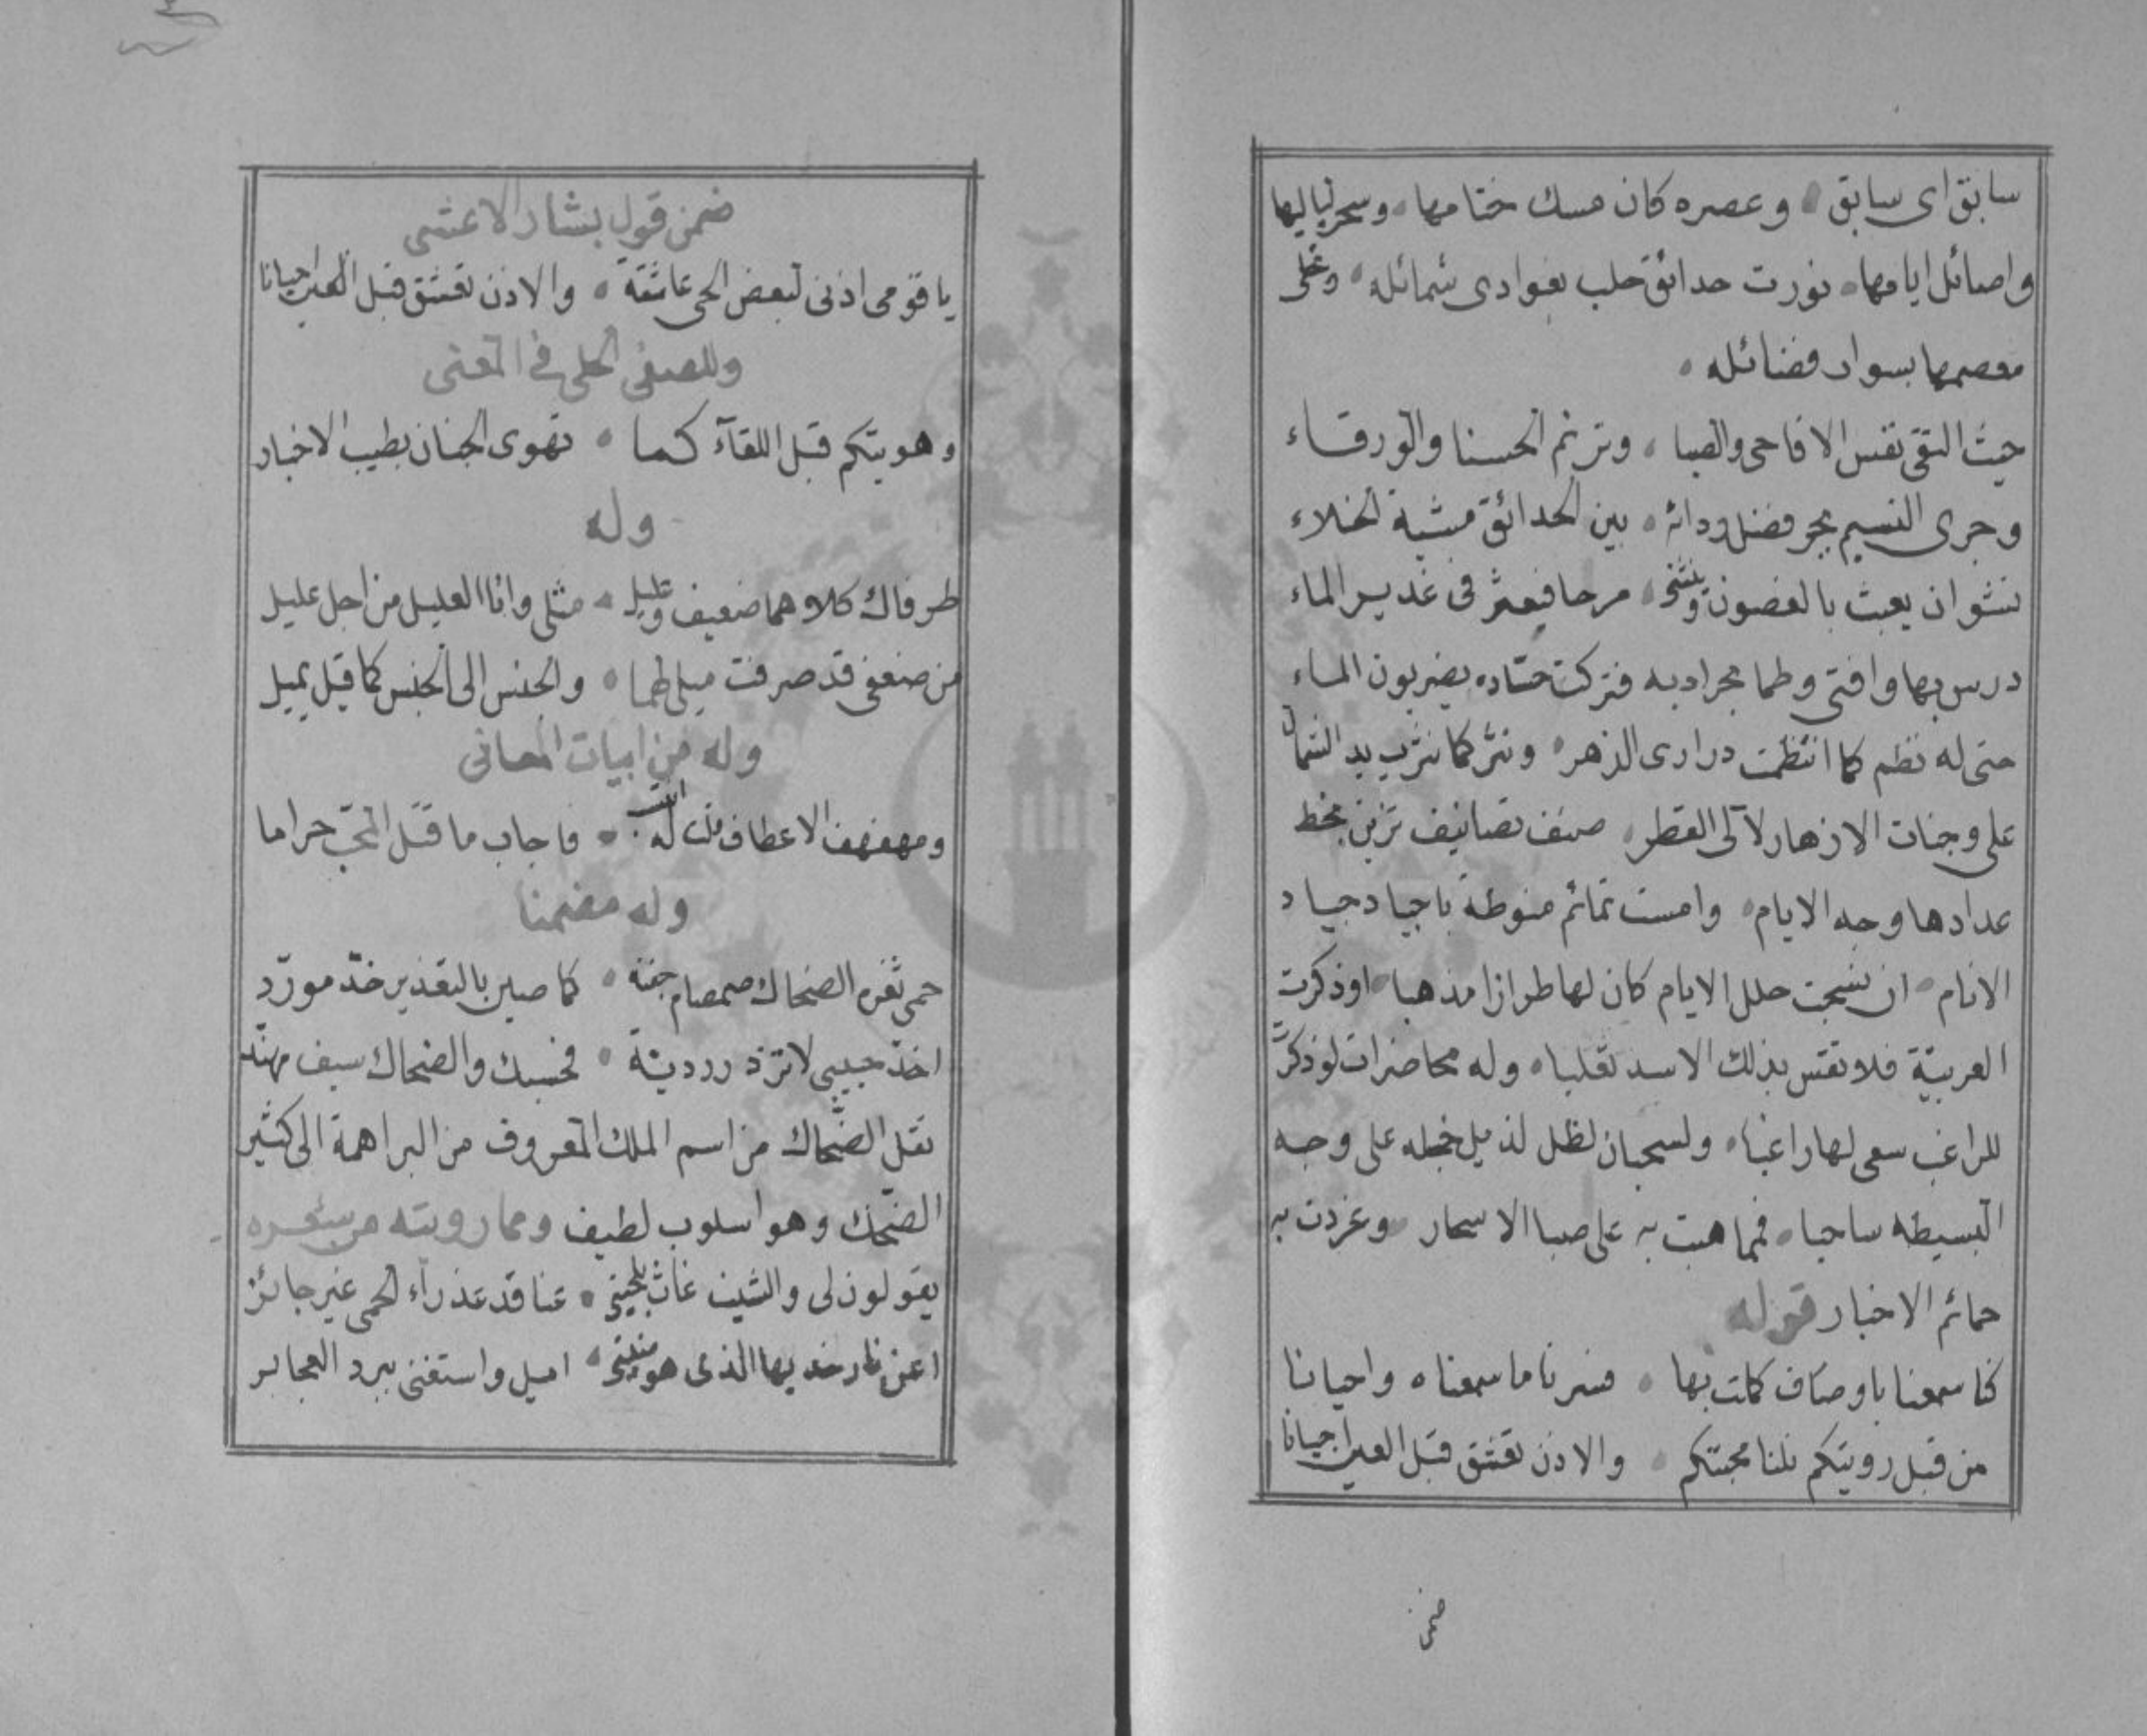 سابق اى سابق ٥ وعصره كان مسك ختامها ٥ وسحر لياليها
واصائل ايامها ٥ نورت حدائق حلب بغوادى شمائله ٥ وتحلى
معصمها بسوار فضائله ٥
حيث التقى نفس الاقاحى والصبا ٥ وترنم الحسنا والورقاء
وجرى النسيم يجر فضل ردائه ٥ بين الحدائق مشية الخيلاء
نشوان يعبث بالغصون وينثنى ٥ مرحا فيعثر فى غدير الماء
درس بها وافتى وطما بحر ادبه فتركت حسّاده يضربون الماء
حتى له نظم كما انتظمت درارى الزهر ٥ ونثر كما نثرت يد الشمال
على وجنات الازهار لآلى القطر ٥ صنف تصانيف تزين بخط
عدادها وجه الايام ٥ وامست تمائم منوطة باجياد جياد
الانام ٥ ان نسجت حلل الايام كان لها طرازا مذهبا ٥ اوذكرت
العربيّة فلا تقس بذلك الاسد ثعلبا ٥ وله محاضرات لو ذكرت
للراغب سعى لها راغبا ٥ ولسحبان لظل لذيل خجله على وجه
البسيطه ساحبا ٥ فمما هبت به على صبا الاسحار ٥ وغردت به
حمائم الاخبار قوله
كنا سمعنا باوصاف كملت بها ٥ فسرنا ما سمعناه واحيانا
من قبل رويتكم نلنا محبتكم ٥ والاذن تعشق قبل العين احيانا
ضمن
ضمن قول بشار الاعشى
يا قومى اذنى لبعض الحى عاشقة ٥ والاذن تعشق قبل العين احيانا
وللصفى الحلى فى المعنى
وهويتكم قبل اللقآء كما ٥ تهوى الجنان بطيب الاخبار
وله
طرفاك كلاهما ضعيف وعليل ٥ مثلى وانا العليل من اجل عليل
من ضعفى قد صرفت ميلى لهما ٥ والجنس الى الجنس كما قيل يميل
وله من ابيات المعانى
ومهفهف الاعطاف قلت له انتسب ٥ فاجاب ما قتل المحبّ حراما
وله مضمنا
حمى ثغره الضحاك صمصام جفنه ٥ كما صين بالتعذير خدّ مورّد
اخدّ حبيبى لا تزد زرديّة ٥ فحسبك والضحاك سيف مهنّد
نقل الضّحاك من اسم الملك المعروف من البراهمة الى كثير
الضّحك وهو اسلوب لطيف ومما رويته من شعره
يقولون لى والشيب غاث بلحيتى ٥ عنا قد عذرآء الحمى غير جائز
اعن نار خديها الذى هو منيتى ٥ اميل واستغنى ببرد العجائز